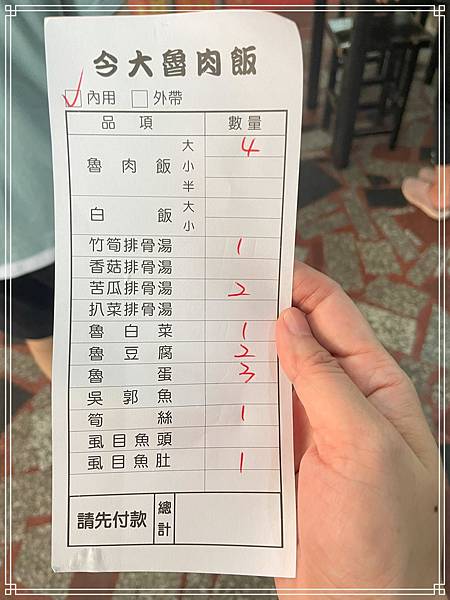 今大魯肉飯
✓內用 □外帶
品項 數量
魯肉飯 大 4
小
半
白飯 大
小
竹筍排骨湯 1
香菇排骨湯
苦瓜排骨湯 2
扒菜排骨湯
魯白菜 1
魯豆腐 2
魯蛋 3
吳郭魚
筍絲 1
虱目魚頭
虱目魚肚 1
請先付款 總計